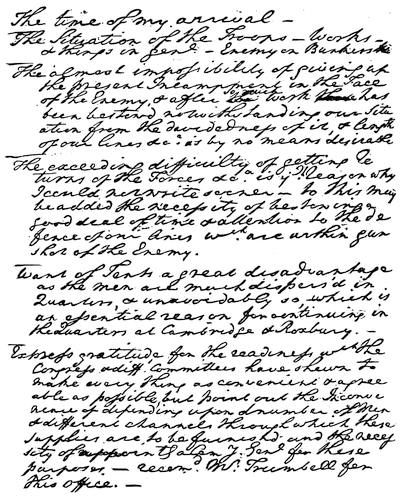 The time of my arrival –
The Situation of the Troops – Works –
& things in genl – Enemy on Bunkers
The almost impossibility of giving up
the present Incampment in the Face
of the Enemy, & after so much Work has
been bestowd, notwithstanding our Situ
ation from the dividedness of it, & length
of our lines &ca is by no means desirable
The exceeding difficulty of getting Re
turns of the Forces &ca is ye Reason why
I could not write sooner – to this may
be added the necessity of bestowing a
good deal of time & attention to the de
fence of our lines wch are within gun
shot of the Enemy.
Want of Tents a great disadvantage
as the men are much dispers'd in
Quarters, & unavoidably so, which is
an essential reason for continuing in
the quarters at Cambridge & Roxbury. –
Express gratitude for the readiness wch the
Congress & diff. Committees have shewn to
make every thing as convenient & agree
able as possible, but point out the Inconve
nience of depending upon a number of Men
& different channels through which these
supplies are to be furnishd and the neces
sity of a Com.y Genl for these
purposes. – recomd Mr. Trumbell for
this office. –